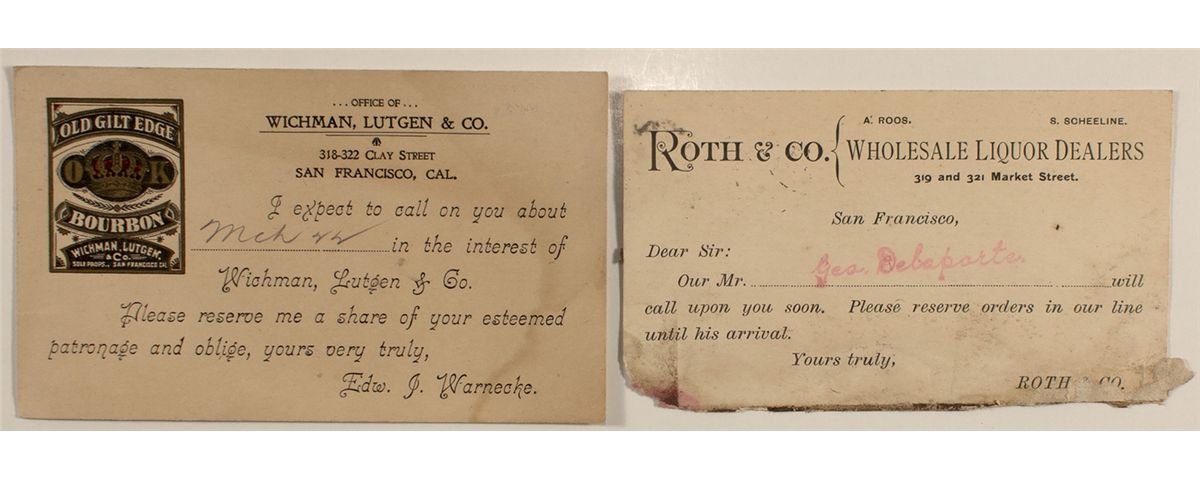 OLD GILT EDGE
OK
BOURBON
WICHMAN, LUTGEN,
& Co.
SOLE PROPS., SAN FRANCISCO CAL.
... OFFICE OF ...
WICHMAN, LUTGEN & CO.
318-322 CLAY STREET
SAN FRANCISCO, CAL.
I expect to call on you about
Mch 22 in the interest of
Wichman, Lutgen & Co.
Please reserve me a share of your esteemed
patronage and oblige, yours very truly,
Edw. J. Warnecke.
A. ROOS. S. SCHEELINE.
ROTH & CO. { WHOLESALE LIQUOR DEALERS
319 and 321 Market Street.
San Francisco,
Dear Sir:
Our Mr. Geo. Delaporte will
call upon you soon. Please reserve orders in our line
until his arrival.
Yours truly,
ROTH & CO.